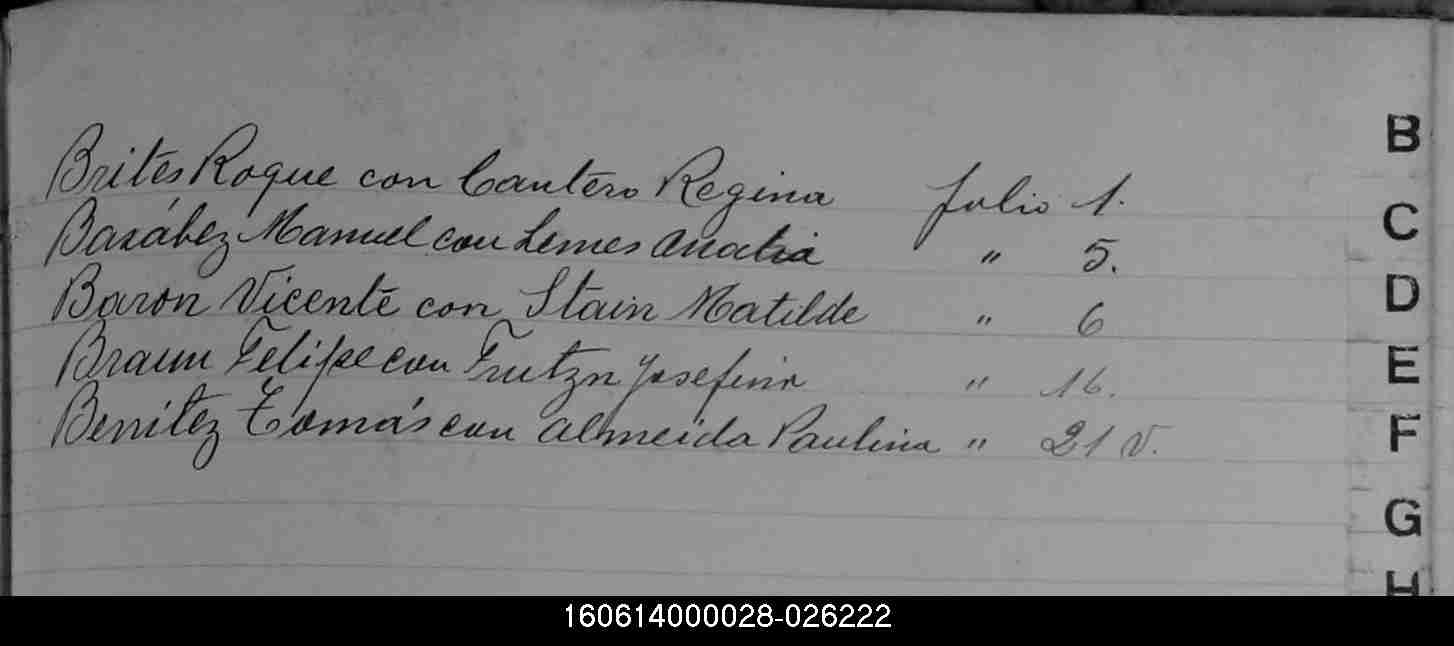 Brites Roque con Cantero Regina folio 1.
Basábez Manuel con Lemes Analia " 5.
Baron Vicente con Stain Matilde " 6
Braun Felipe con Josefina " 16.
Benitez Tomás con Almeida Paulina " 21 v.
B
C
D
E
F
G
H
160614000028-026222